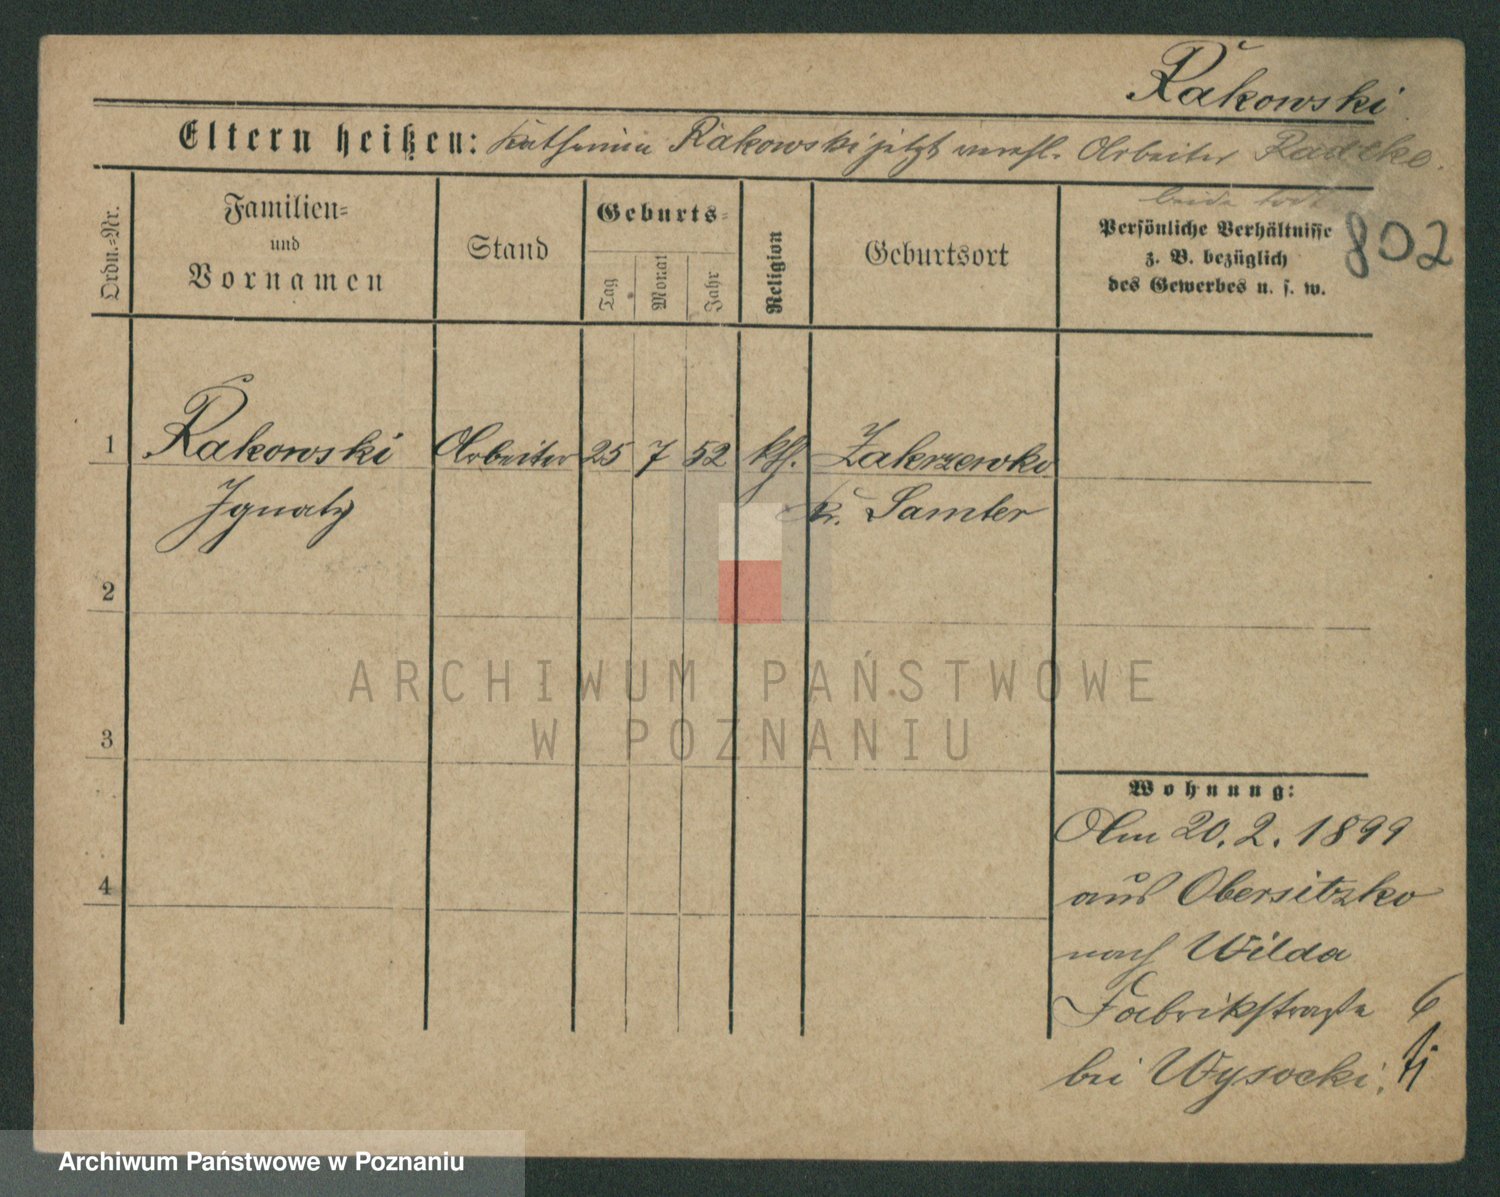 Rakowski
Eltern heißen: Katharina Rakowski jetzt verehl. Arbeiter Radtke.
beide todt
Ordn.-Nr.
Familien-
und
Vornamen
Stand
Geburts-
Tag
Monat
Jahr
Religion
Geburtsort
Persönliche Verhältnisse
z. B. bezüglich
des Gewerbes u. s. w.
802
1 Rakowski Arbeiter 25 7 52 kth. Zakrzewko
Ignatz Kr. Samter
2
3
4
ARCHIWUM PAŃSTWOWE
W POZNANIU
Wohnung:
Am 20. 2. 1899
aus Obersitzko
nach Wilda
Fabrikstraße 6
bei Wysocki.
Archiwum Państwowe w Poznaniu